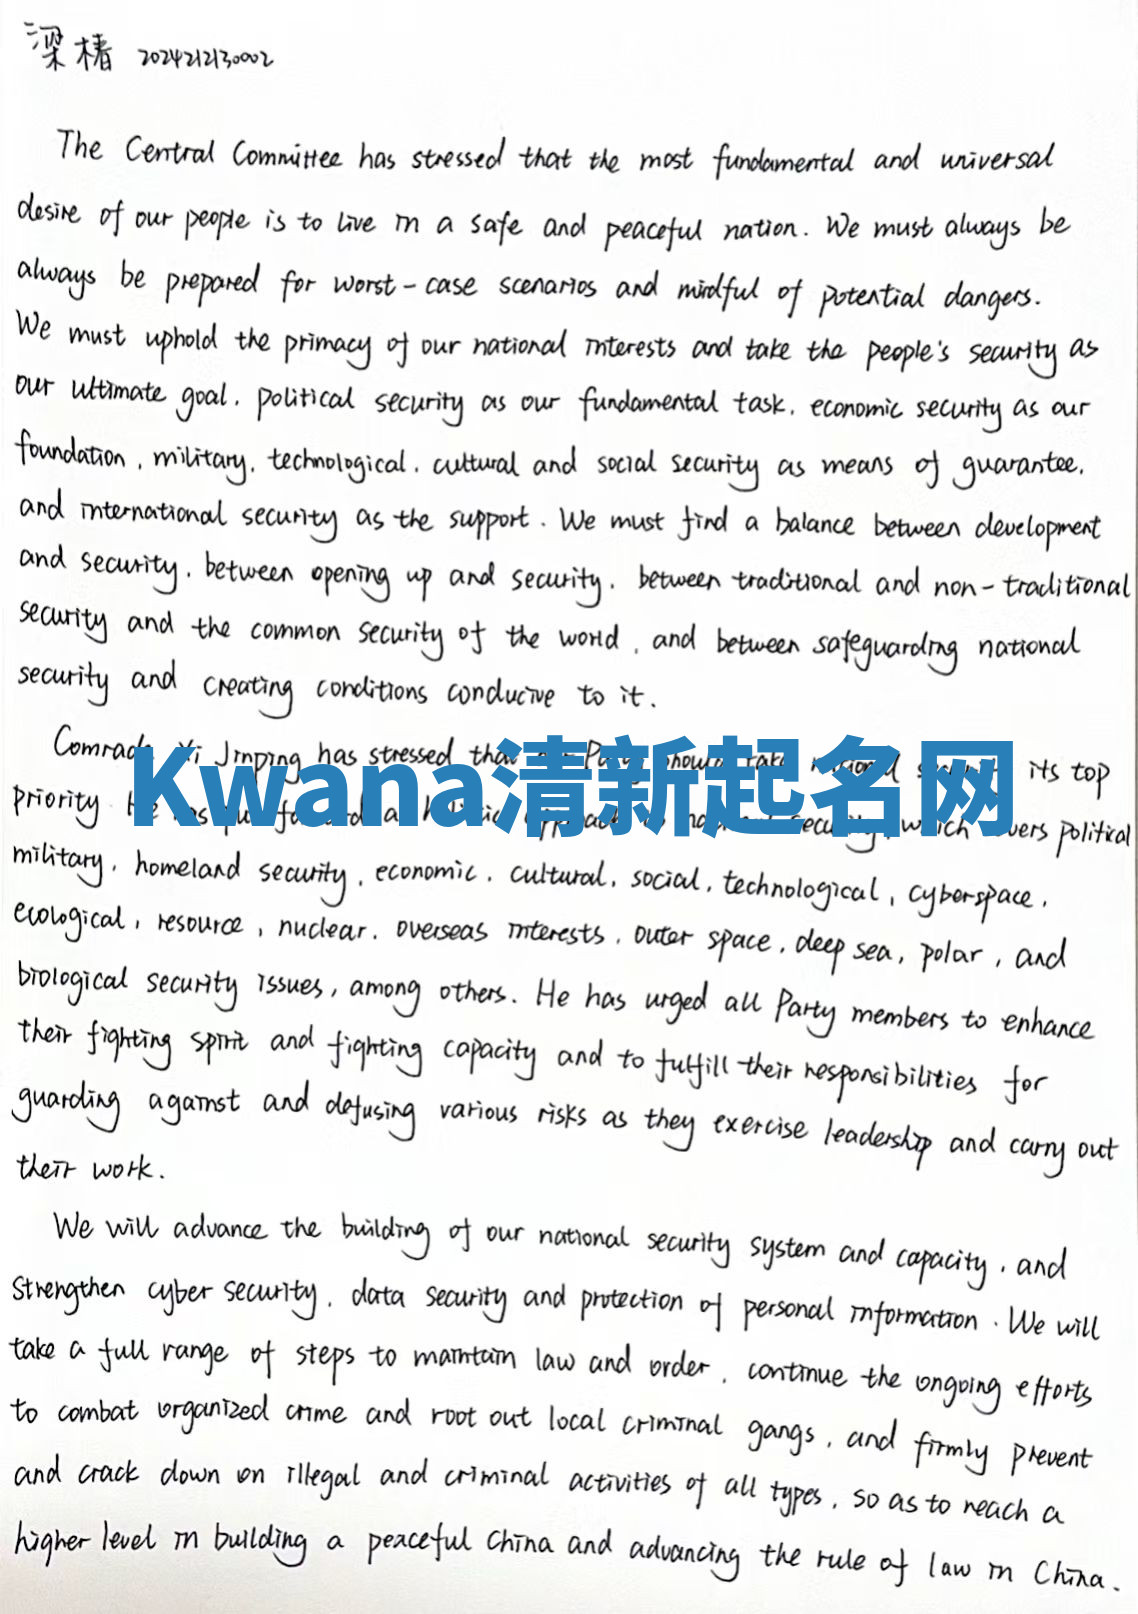 梁椿 2024212130002
The Central Committee has stressed that the most fundamental and universal
desire of our people is to live in a safe and peaceful nation. We must always be
always be prepared for worst-case scenarios and mindful of potential dangers.
We must uphold the primacy of our national interests and take the people's security as
our ultimate goal, political security as our fundamental task, economic security as our
foundation, military, technological, cultural and social security as means of guarantee,
and international security as the support. We must find a balance between development
and security, between opening up and security, between traditional and non-traditional
security and the common security of the world, and between safeguarding national
security and creating conditions conducive to it.
Comrade Xi Jinping has stressed that Party should take national its top
priority. He has put forward a to national security, which covers political
military, homeland security, economic, cultural, social, technological, cyberspace,
ecological, resource, nuclear, overseas interests, outer space, deep sea, polar, and
biological security issues, among others. He has urged all Party members to enhance
their fighting spirit and fighting capacity and to fulfill their responsibilities for
guarding against and defusing various risks as they exercise leadership and carry out
their work.
We will advance the building of our national security system and capacity, and
strengthen cyber security, data security and protection of personal information. We will
take a full range of steps to maintain law and order, continue the ongoing efforts
to combat organized crime and root out local criminal gangs, and firmly prevent
and crack down on illegal and criminal activities of all types, so as to reach a
higher level in building a peaceful China and advancing the rule of law in China.
Kwana清新起名网